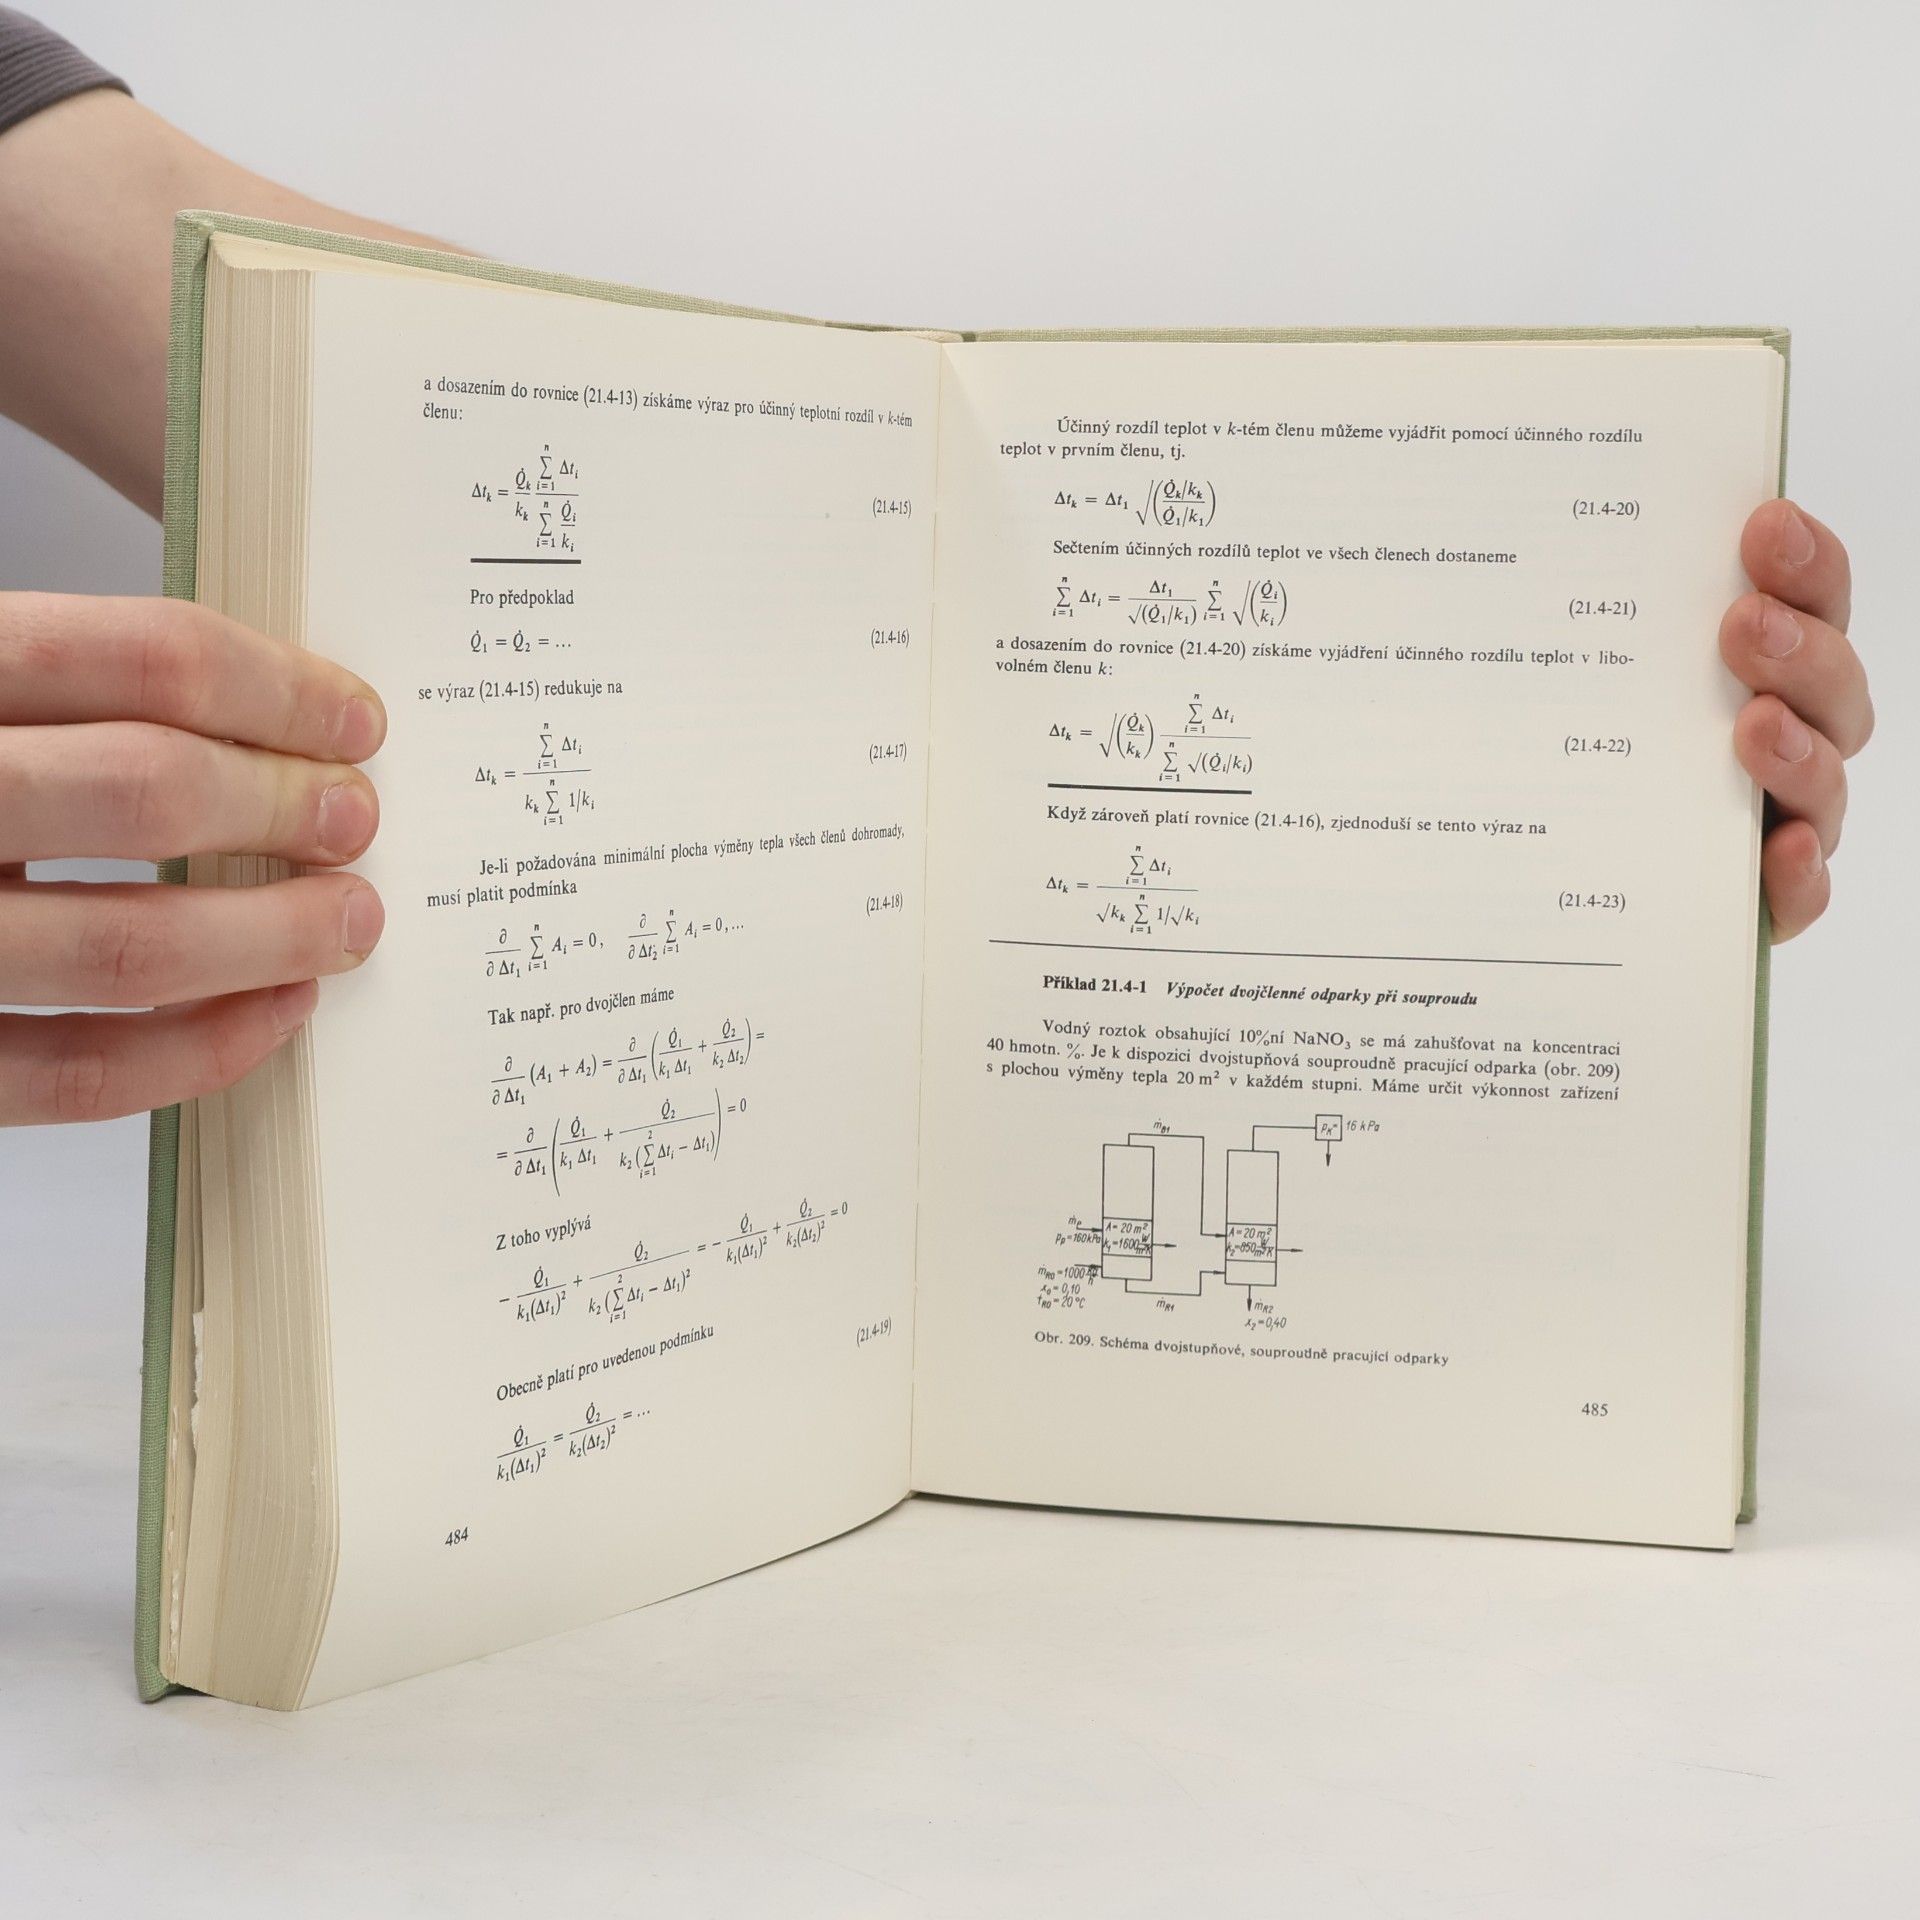 a dosazením do rovnice (21.4-13) získáme výraz pro účinný teplotní rozdíl v k-tém
členu:
Δtₖ = Q̇ₖ/kₖ · ∑ᵢ₌₁ⁿ Δtᵢ / ∑ᵢ₌₁ⁿ Q̇ᵢ/kᵢ (21.4-15)
Pro předpoklad
Q̇₁ = Q̇₂ = ... (21.4-16)
se výraz (21.4-15) redukuje na
Δtₖ = ∑ᵢ₌₁ⁿ Δtᵢ / kₖ ∑ᵢ₌₁ⁿ 1/kᵢ (21.4-17)
Je-li požadována minimální plocha výměny tepla všech členů dohromady,
musí platit podmínka
∂/∂ Δt₁ ∑ᵢ₌₁ⁿ Aᵢ = 0, ∂/∂ Δt₂ ∑ᵢ₌₁ⁿ Aᵢ = 0, ... (21.4-18)
Tak např. pro dvojčlen máme
∂/∂ Δt₁ (A₁ + A₂) = ∂/∂ Δt₁ (Q̇₁/k₁ Δt₁ + Q̇₂/k₂ Δt₂) =
= ∂/∂ Δt₁ (Q̇₁/k₁ Δt₁ + Q̇₂/k₂ (∑ᵢ₌₁² Δtᵢ − Δt₁)) = 0
Z toho vyplývá
− Q̇₁/k₁(Δt₁)² + Q̇₂/k₂ (∑ᵢ₌₁² Δtᵢ − Δt₁)² = − Q̇₁/k₁(Δt₁)² + Q̇₂/k₂(Δt₂)² = 0
Obecně platí pro uvedenou podmínku (21.4-19)
Q̇₁/k₁(Δt₁)² = Q̇₂/k₂(Δt₂)² = ...
484
Účinný rozdíl teplot v k-tém členu můžeme vyjádřit pomocí účinného rozdílu
teplot v prvním členu, tj.
Δtₖ = Δt₁ √(Q̇ₖ/kₖ / Q̇₁/k₁) (21.4-20)
Sečtením účinných rozdílů teplot ve všech členech dostaneme
∑ᵢ₌₁ⁿ Δtᵢ = Δt₁/√(Q̇₁/k₁) ∑ᵢ₌₁ⁿ √(Q̇ᵢ/kᵢ) (21.4-21)
a dosazením do rovnice (21.4-20) získáme vyjádření účinného rozdílu teplot v libo-
volném členu k:
Δtₖ = √(Q̇ₖ/kₖ) ∑ᵢ₌₁ⁿ Δtᵢ / ∑ᵢ₌₁ⁿ √(Q̇ᵢ/kᵢ) (21.4-22)
Když zároveň platí rovnice (21.4-16), zjednoduší se tento výraz na
Δtₖ = ∑ᵢ₌₁ⁿ Δtᵢ / √kₖ ∑ᵢ₌₁ⁿ 1/√kᵢ (21.4-23)
Příklad 21.4-1 Výpočet dvojčlenné odparky při souproudu
Vodný roztok obsahující 10%ní NaNO₃ se má zahušťovat na koncentraci
40 hmotn. %. Je k dispozici dvojstupňová souproudně pracující odparka (obr. 209)
s plochou výměny tepla 20 m² v každém stupni. Máme určit výkonnost zařízení
ṁB1
pK= 16 kPa
ṁP
pP=160kPa
A=20 m²
k₁=1600 W/m²K
A=20 m²
k₂=850 W/m²K
ṁR0=1000 kg/h
x₀=0,10
tR0=20 °C
ṁR1
ṁR2
x₂=0,40
Obr. 209. Schéma dvojstupňové, souproudně pracující odparky
485